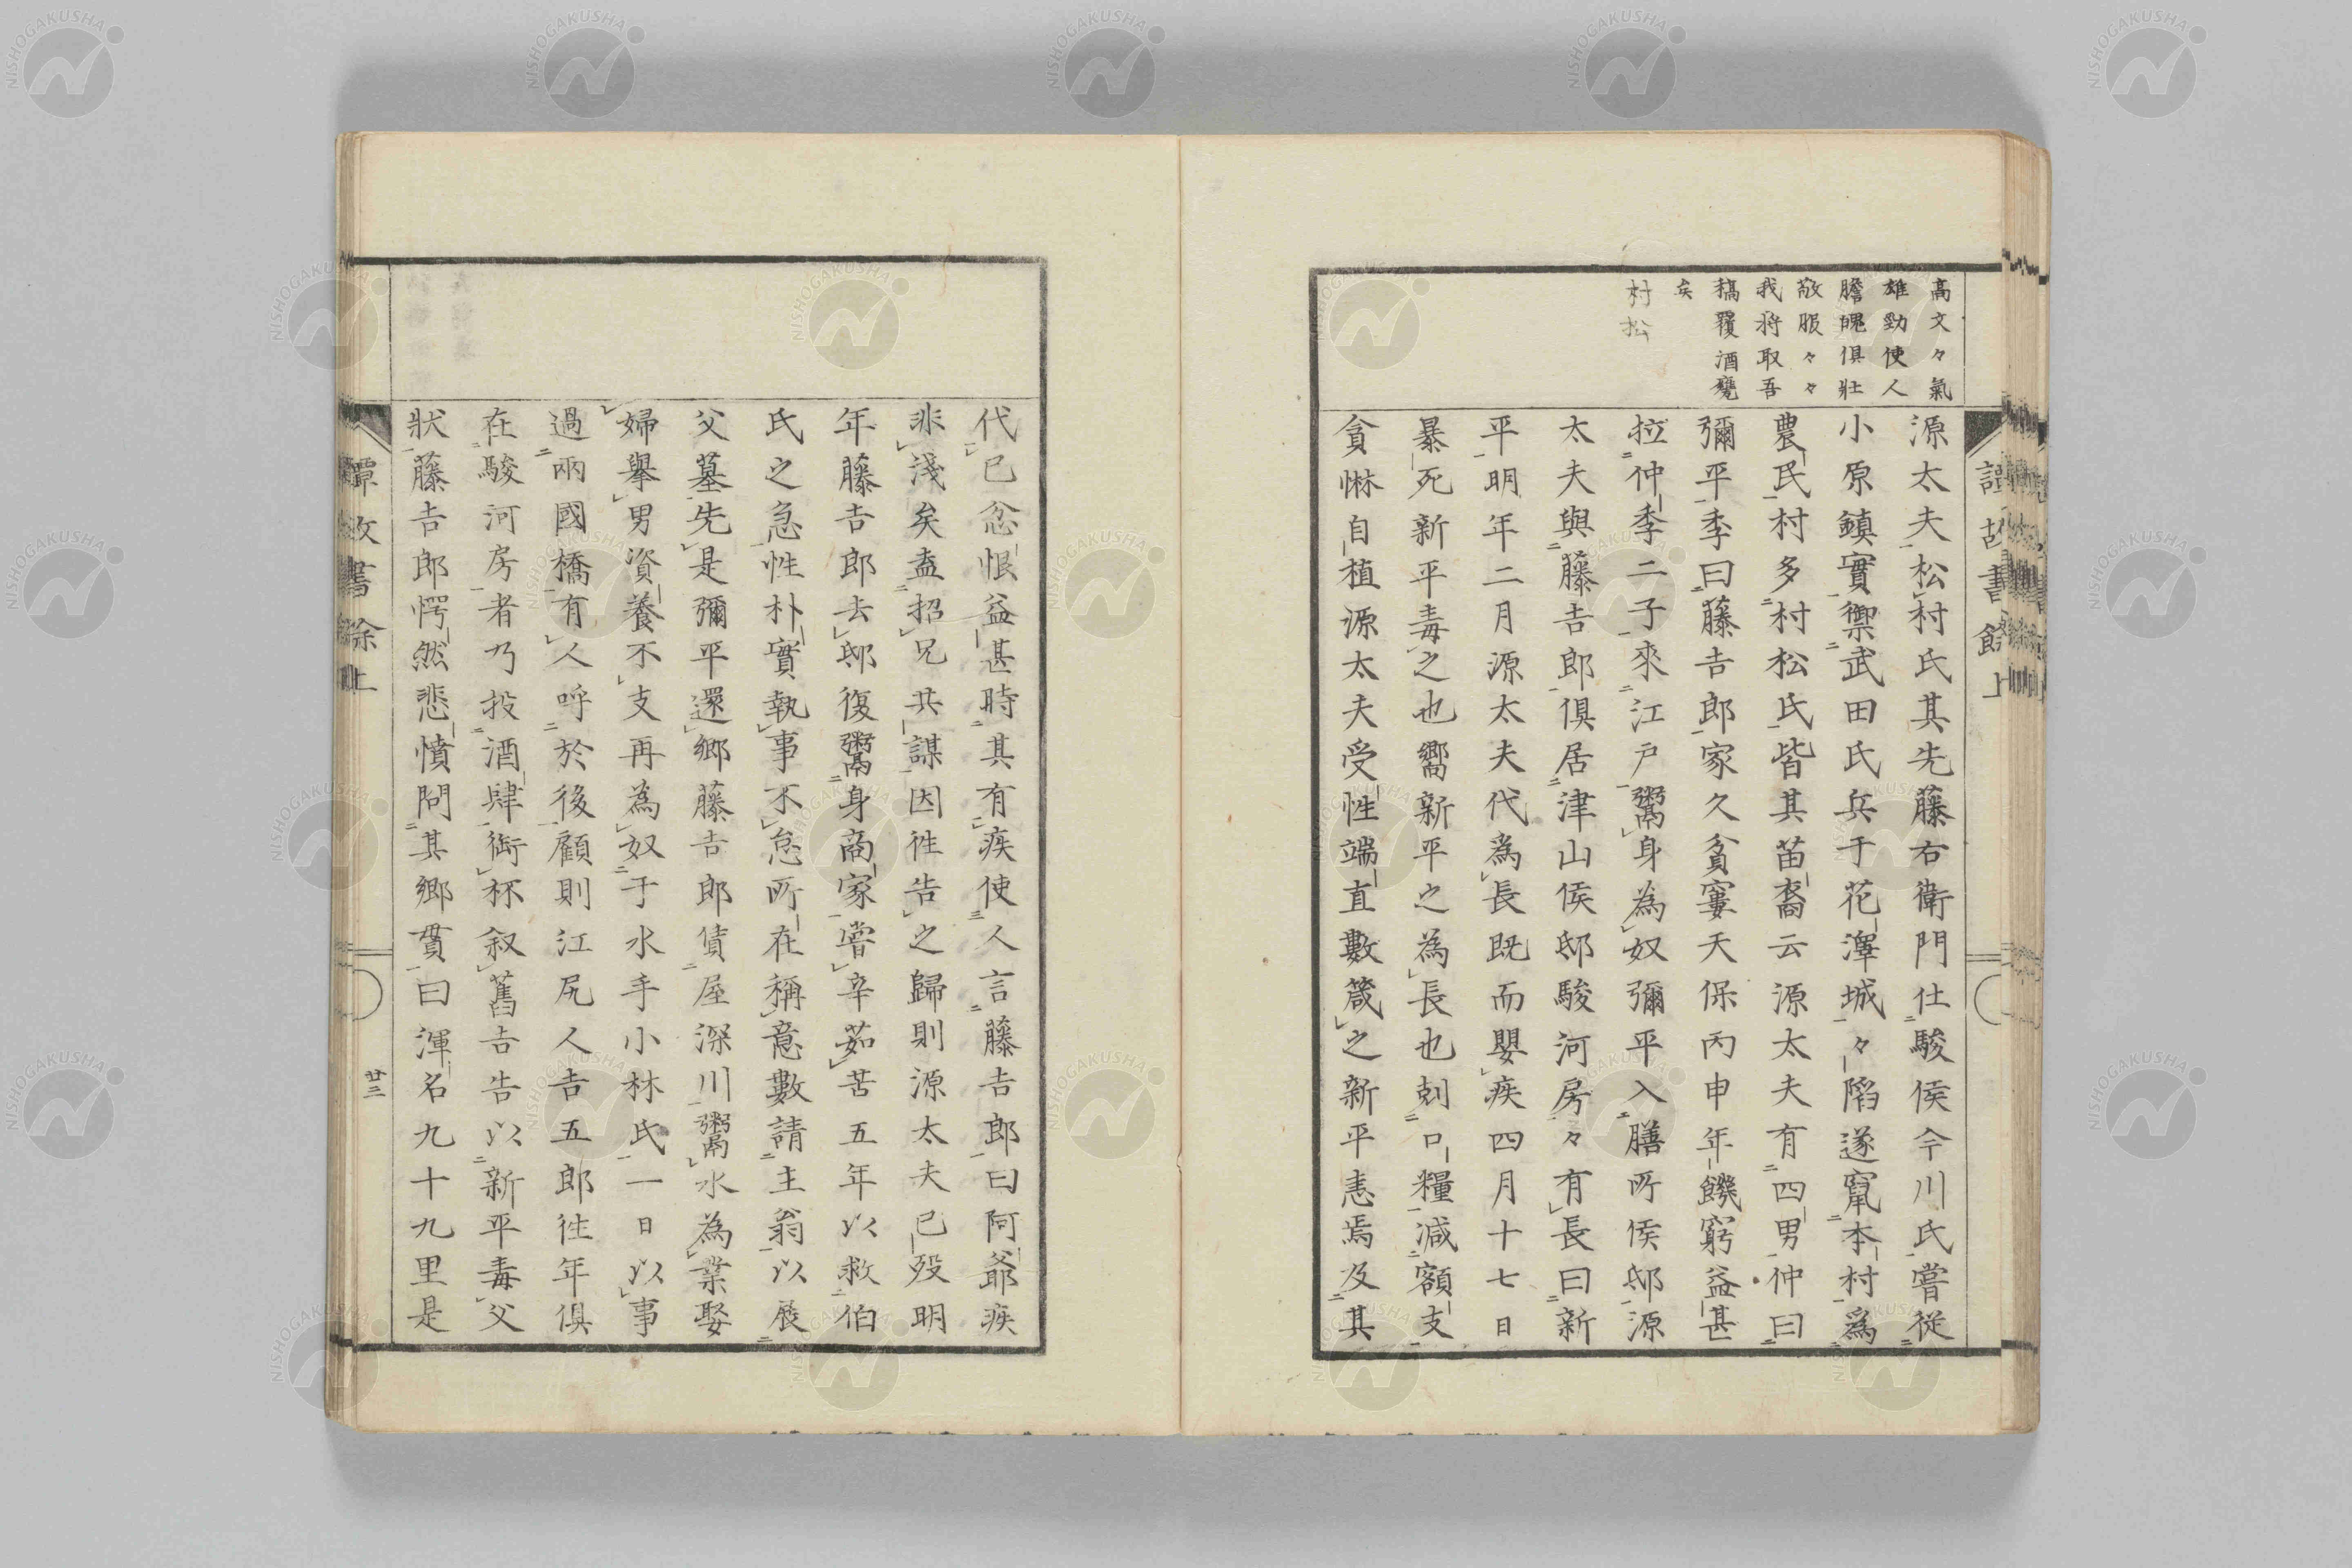 高文々氣
雄勁使人
膽魄俱壯
敬服々々
我將取吾
稿覆酒甕
矣
村松
源太夫松村氏其先藤右衛門仕駿侯今川氏嘗從
小原鎮實禦武田氏兵于花澤城々陷遂竄本村爲
農民村多村松氏皆其苗裔云源太夫有四男仲曰
彌平季曰藤吉郎家久貧窶天保丙申年饑窮益甚
拉仲季二子來江戸鬻身為奴彌平入膳所侯邸源
太夫與藤吉郎俱居津山侯邸駿河房々有長曰新
平明年二月源太夫代爲長既而嬰疾四月十七日
暴死新平毒之也嚮新平之為長也剋口糧減額支
貪惏自植源太夫受性端直數箴之新平恚焉及其
代已忿恨益甚時其有疾使人言藤吉郎曰阿爺疾
非淺矣盍招兄共謀因徃告之歸則源太夫已歿明
年藤吉郎去邸復鬻身商家嘗辛茹苦五年以救伯
氏之急性朴實執事不怠所在稱意數請主翁以展
父墓先是彌平還鄉藤吉郎債屋深川鬻水為業娶
婦擧男資養不支再為奴于水手小林氏一日以事
過兩國橋有人呼於後顧則江尻人吉五郎徃年俱
在駿河房者乃投酒肆衘杯叙舊吉告以新平毒父
狀藤吉郎愕然悲憤問其鄉貫曰渾名九十九里是
譚故書餘上
廿三